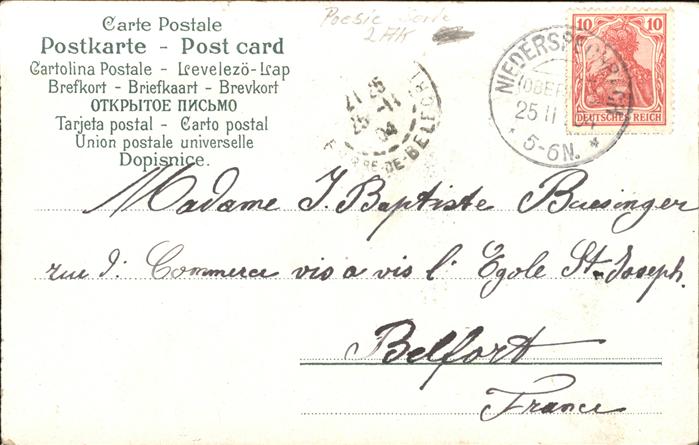 Carte Postale
Postkarte - Post card
Cartolina Postale - Levelezö-Lap
Brefkort - Briefkaart - Brevkort
ОТКРЫТОЕ ПИСЬМО
Tarjeta postal - Carto postal
Union postale universelle
Dopisnice.
2 AK
21 25
25 -11
04
DE-BELFORT
25 11 04
* 5-6N. *
10 10
DEUTSCHES REICH
Madame J. Baptiste Buesinger
rue d. Commerce vis a vis l' Egole St-Joseph.
Belfort
France